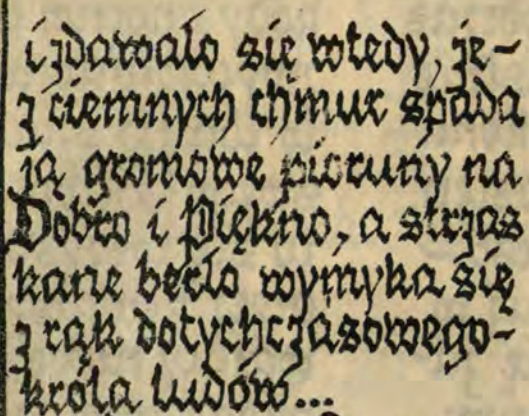 i zdawało się wtedy, że-
z ciemnych chmur spada
ją gromowe pioruny na
Dobro i Piękno, a strzas
kane berło wymyka się
z rąk dotychczasowego-
króla ludów...